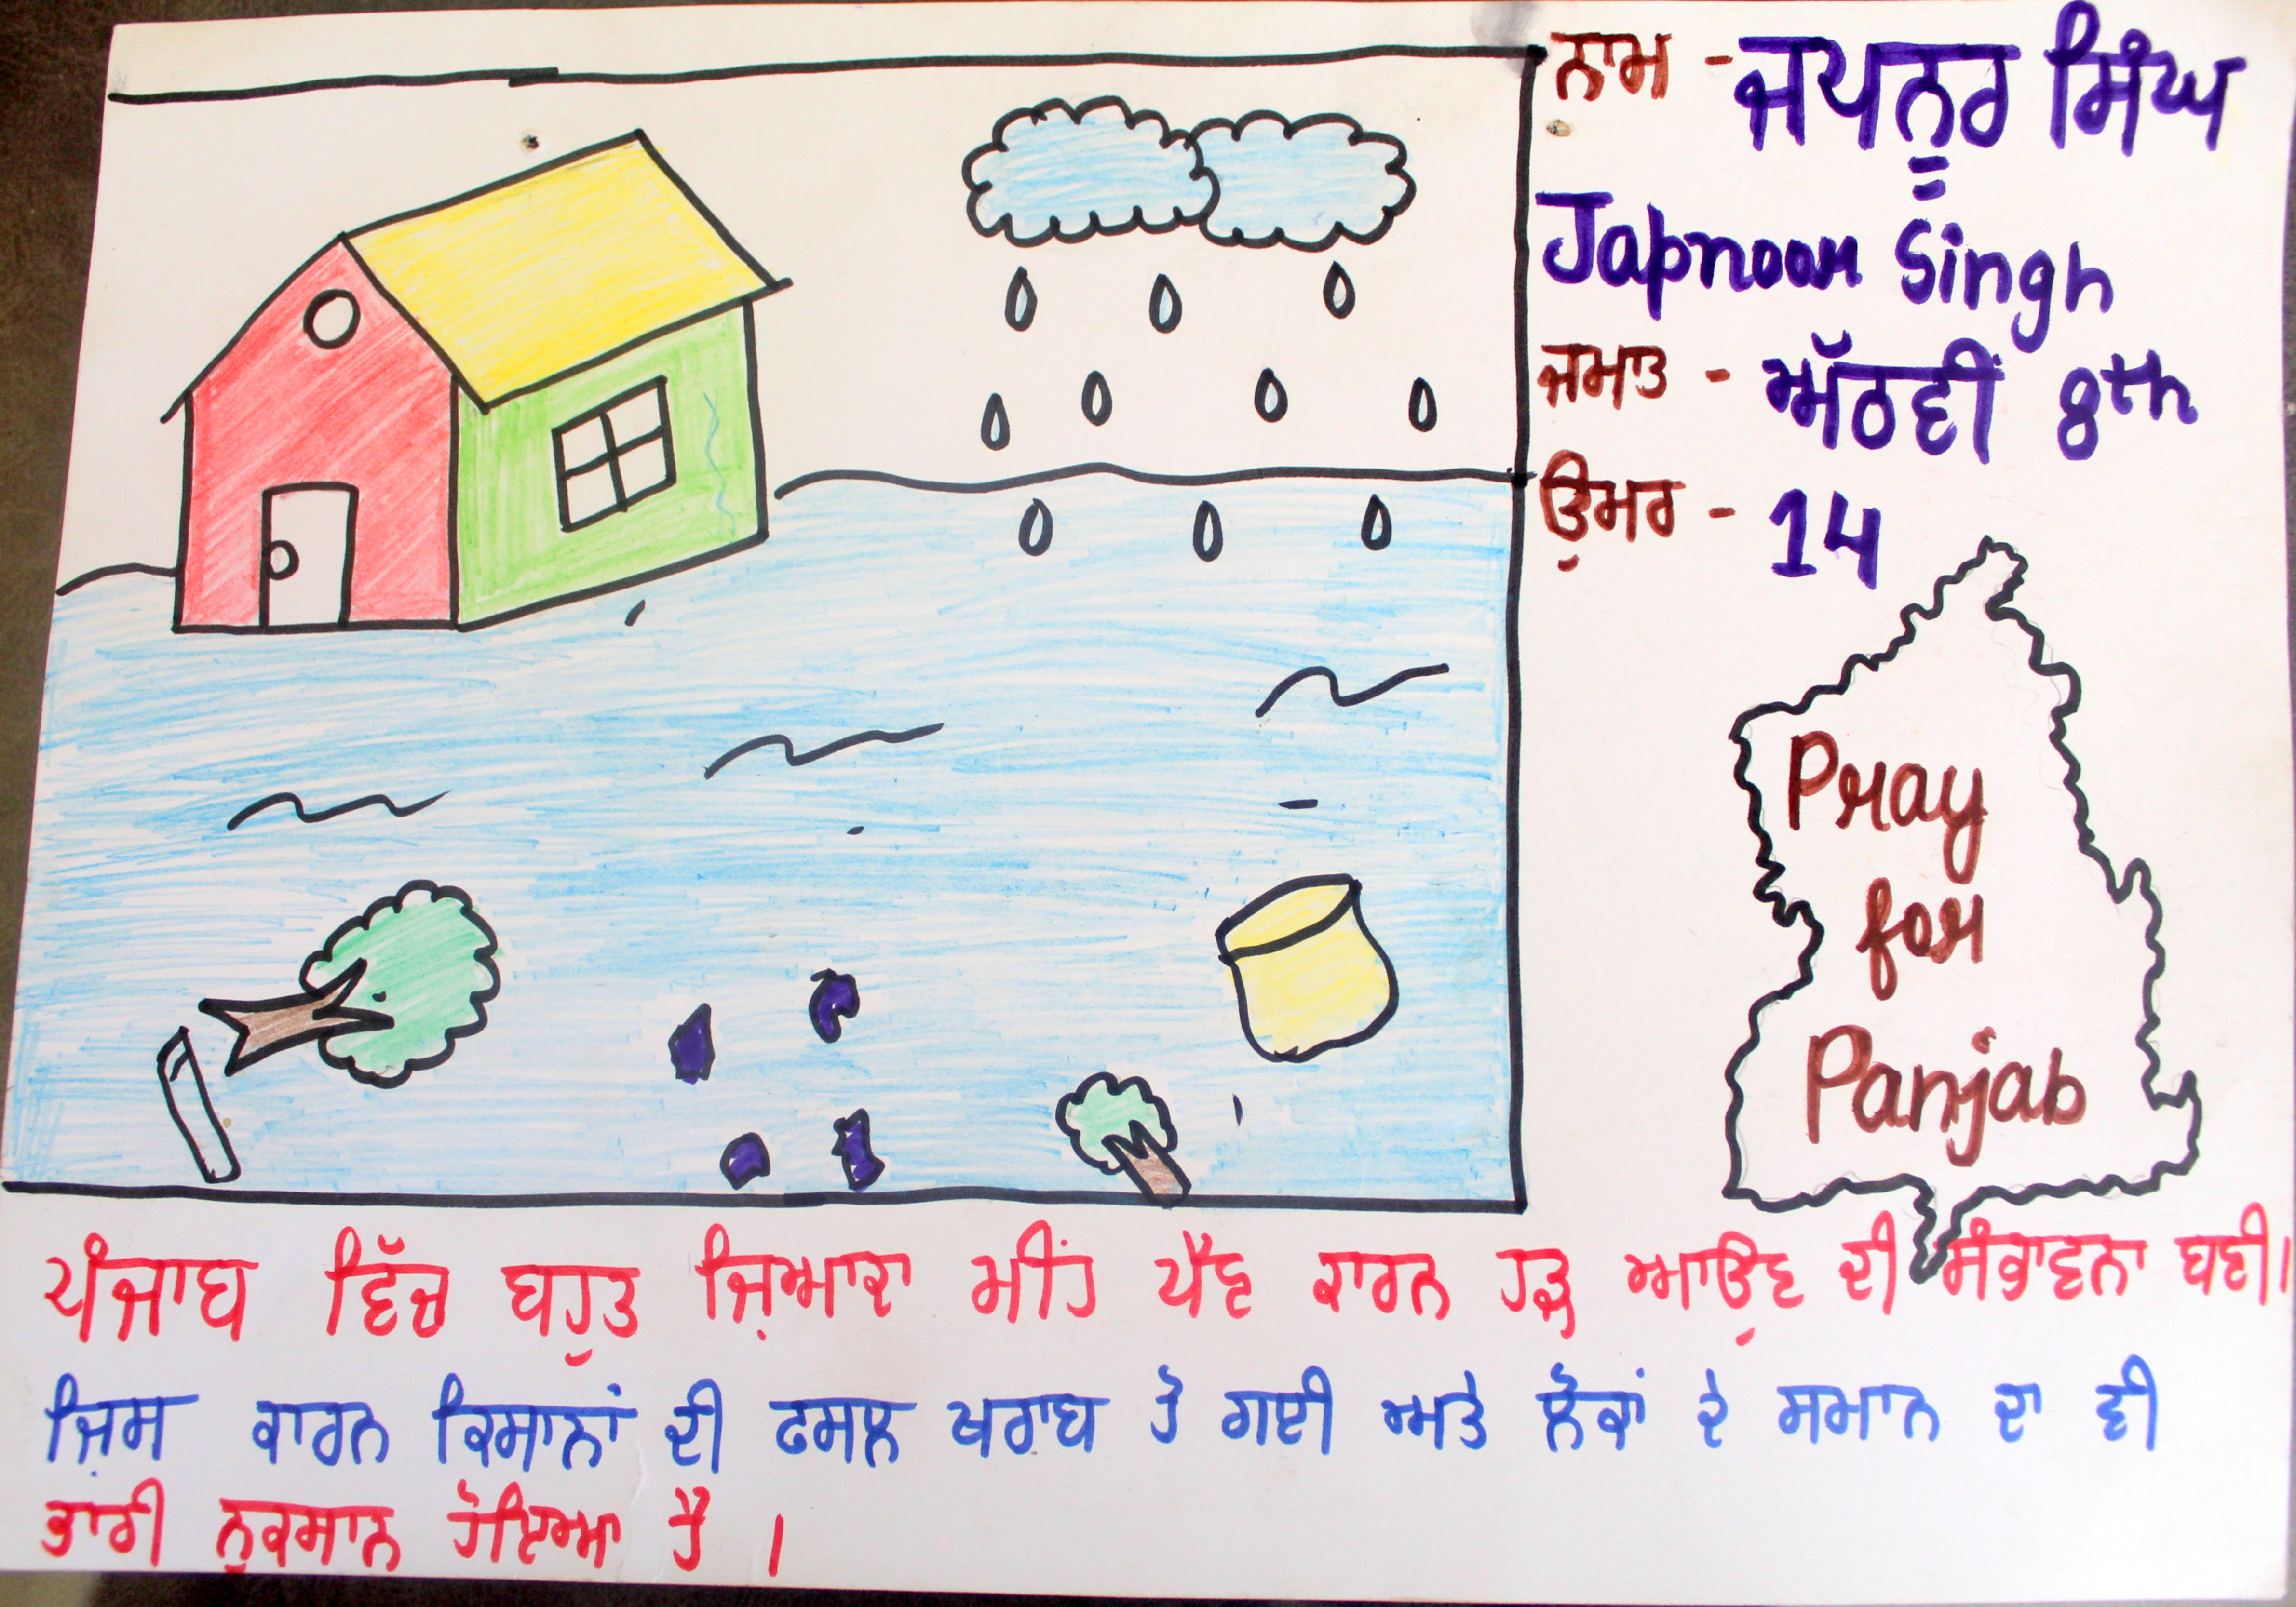 ਨਾਮ - ਜਪਨੂਰ ਸਿੰਘ
Japnoor Singh
ਜਮਾਤ - ਅੱਠਵੀਂ 8th
ਉਮਰ - 14
Pray
for
Panjab
ਪੰਜਾਬ ਵਿੱਚ ਬਹੁਤ ਜ਼ਿਆਦਾ ਮੀਂਹ ਪੈਣ ਕਾਰਨ ਹੜ੍ਹ ਆਉਣ ਦੀ ਸੰਭਾਵਨਾ ਬਣੀ।
ਜਿਸ ਕਾਰਨ ਕਿਸਾਨਾਂ ਦੀ ਫਸਲ ਖਰਾਬ ਹੋ ਗਈ ਅਤੇ ਲੋਕਾਂ ਦੇ ਸਮਾਨ ਦਾ ਵੀ
ਭਾਰੀ ਨੁਕਸਾਨ ਹੋਇਆ ਹੈ ।